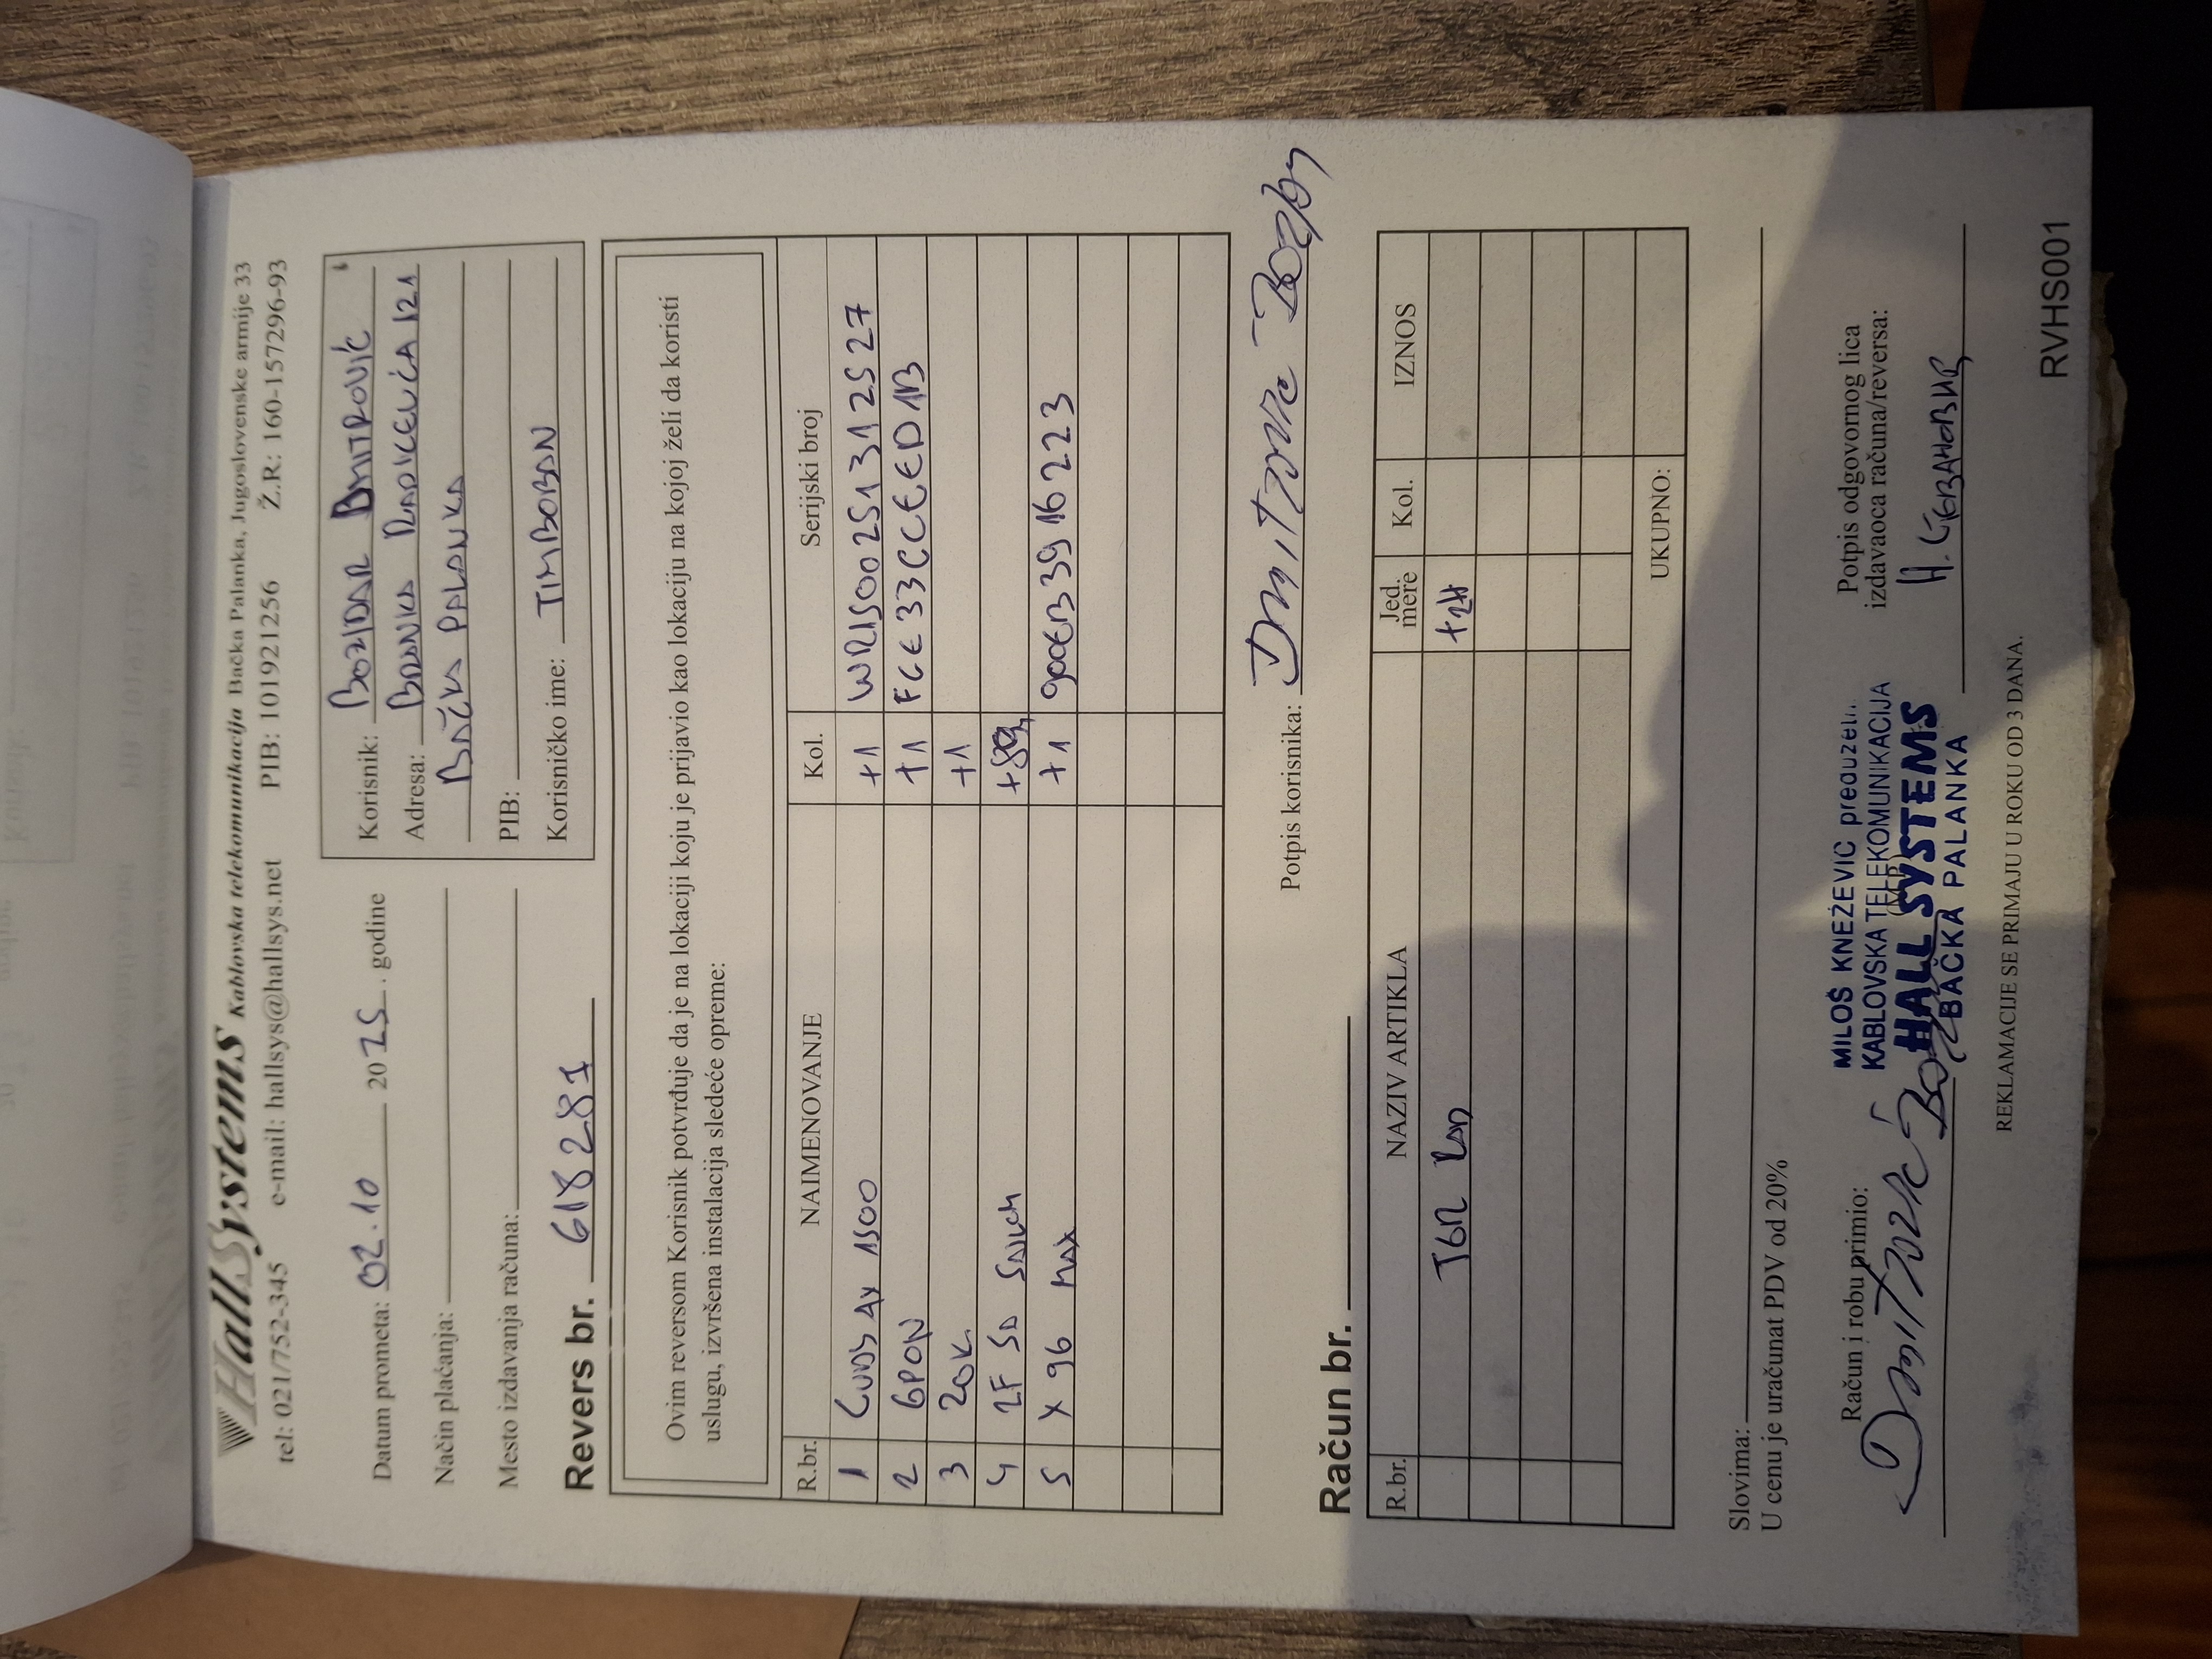 HallSystems Kablovska telekomunikacija Bačka Palanka, Jugoslovenske armije 33
tel: 021/752-345 e-mail: hallsys@hallsys.net PIB: 101921256 Ž.R: 160-157296-93
Datum prometa: 02.10 2025. godine
Način plaćanja:
Mesto izdavanja računa:
Korisnik: BOZIDAR DMITROVIĆ
Adresa: BRANKA RADIČEVIĆA 121
BAČKA PALANKA
PIB:
Korisničko ime: TIMBOBAN
Revers br. 618281
Ovim reversom Korisnik potvrđuje da je na lokaciji koju je prijavio kao lokaciju na kojoj želi da koristi
uslugu, izvršena instalacija sledeće opreme:
R.br. NAIMENOVANJE Kol. Serijski broj
1 CUDY AX 1500 +1 WR1500251312527
2 GPON +1 FCE33CCEED1B
3 ZOK +1
4 2F SA
5 X96 MAX +1 900EB3916223
Potpis korisnika:
Račun br.
R.br. NAZIV ARTIKLA Jed. mere Kol. IZNOS
UKUPNO:
Slovima:
U cenu je uračunat PDV od 20%
Račun i robu primio:
MILOŠ KNEŽEVIĆ preduzet..
KABLOVSKA TELEKOMUNIKACIJA
HALL SYSTEMS
BAČKA PALANKA
(M.P.)
Potpis odgovornog lica
izdavaoca računa/reversa:
REKLAMACIJE SE PRIMAJU U ROKU OD 3 DANA.
RVHS001